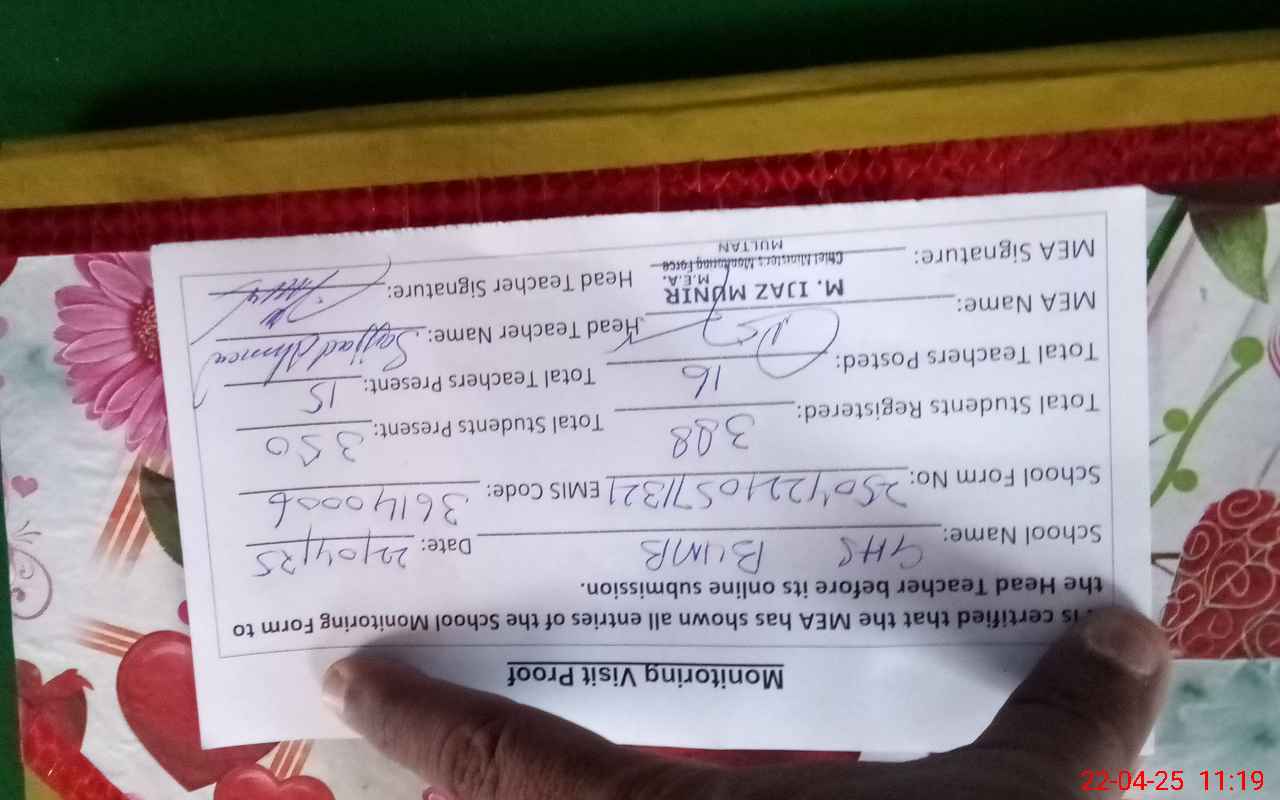 Monitoring Visit Proof
It is certified that the MEA has shown all entries of the School Monitoring Form to
the Head Teacher before its online submission.
School Name: GHS BUMB Date: 22/04/25
School Form No: 25041221057/1321 EMIS Code: 36140006
Total Students Registered: 388 Total Students Present: 350
Total Teachers Posted: 16 Total Teachers Present: 15
MEA Name: Head Teacher Name: Sajjad Ahmed
M. IJAZ MUNIR
M.E.A.
Chief Minister's Monitoring Force
MULTAN
MEA Signature: Head Teacher Signature:
22-04-25 11:19